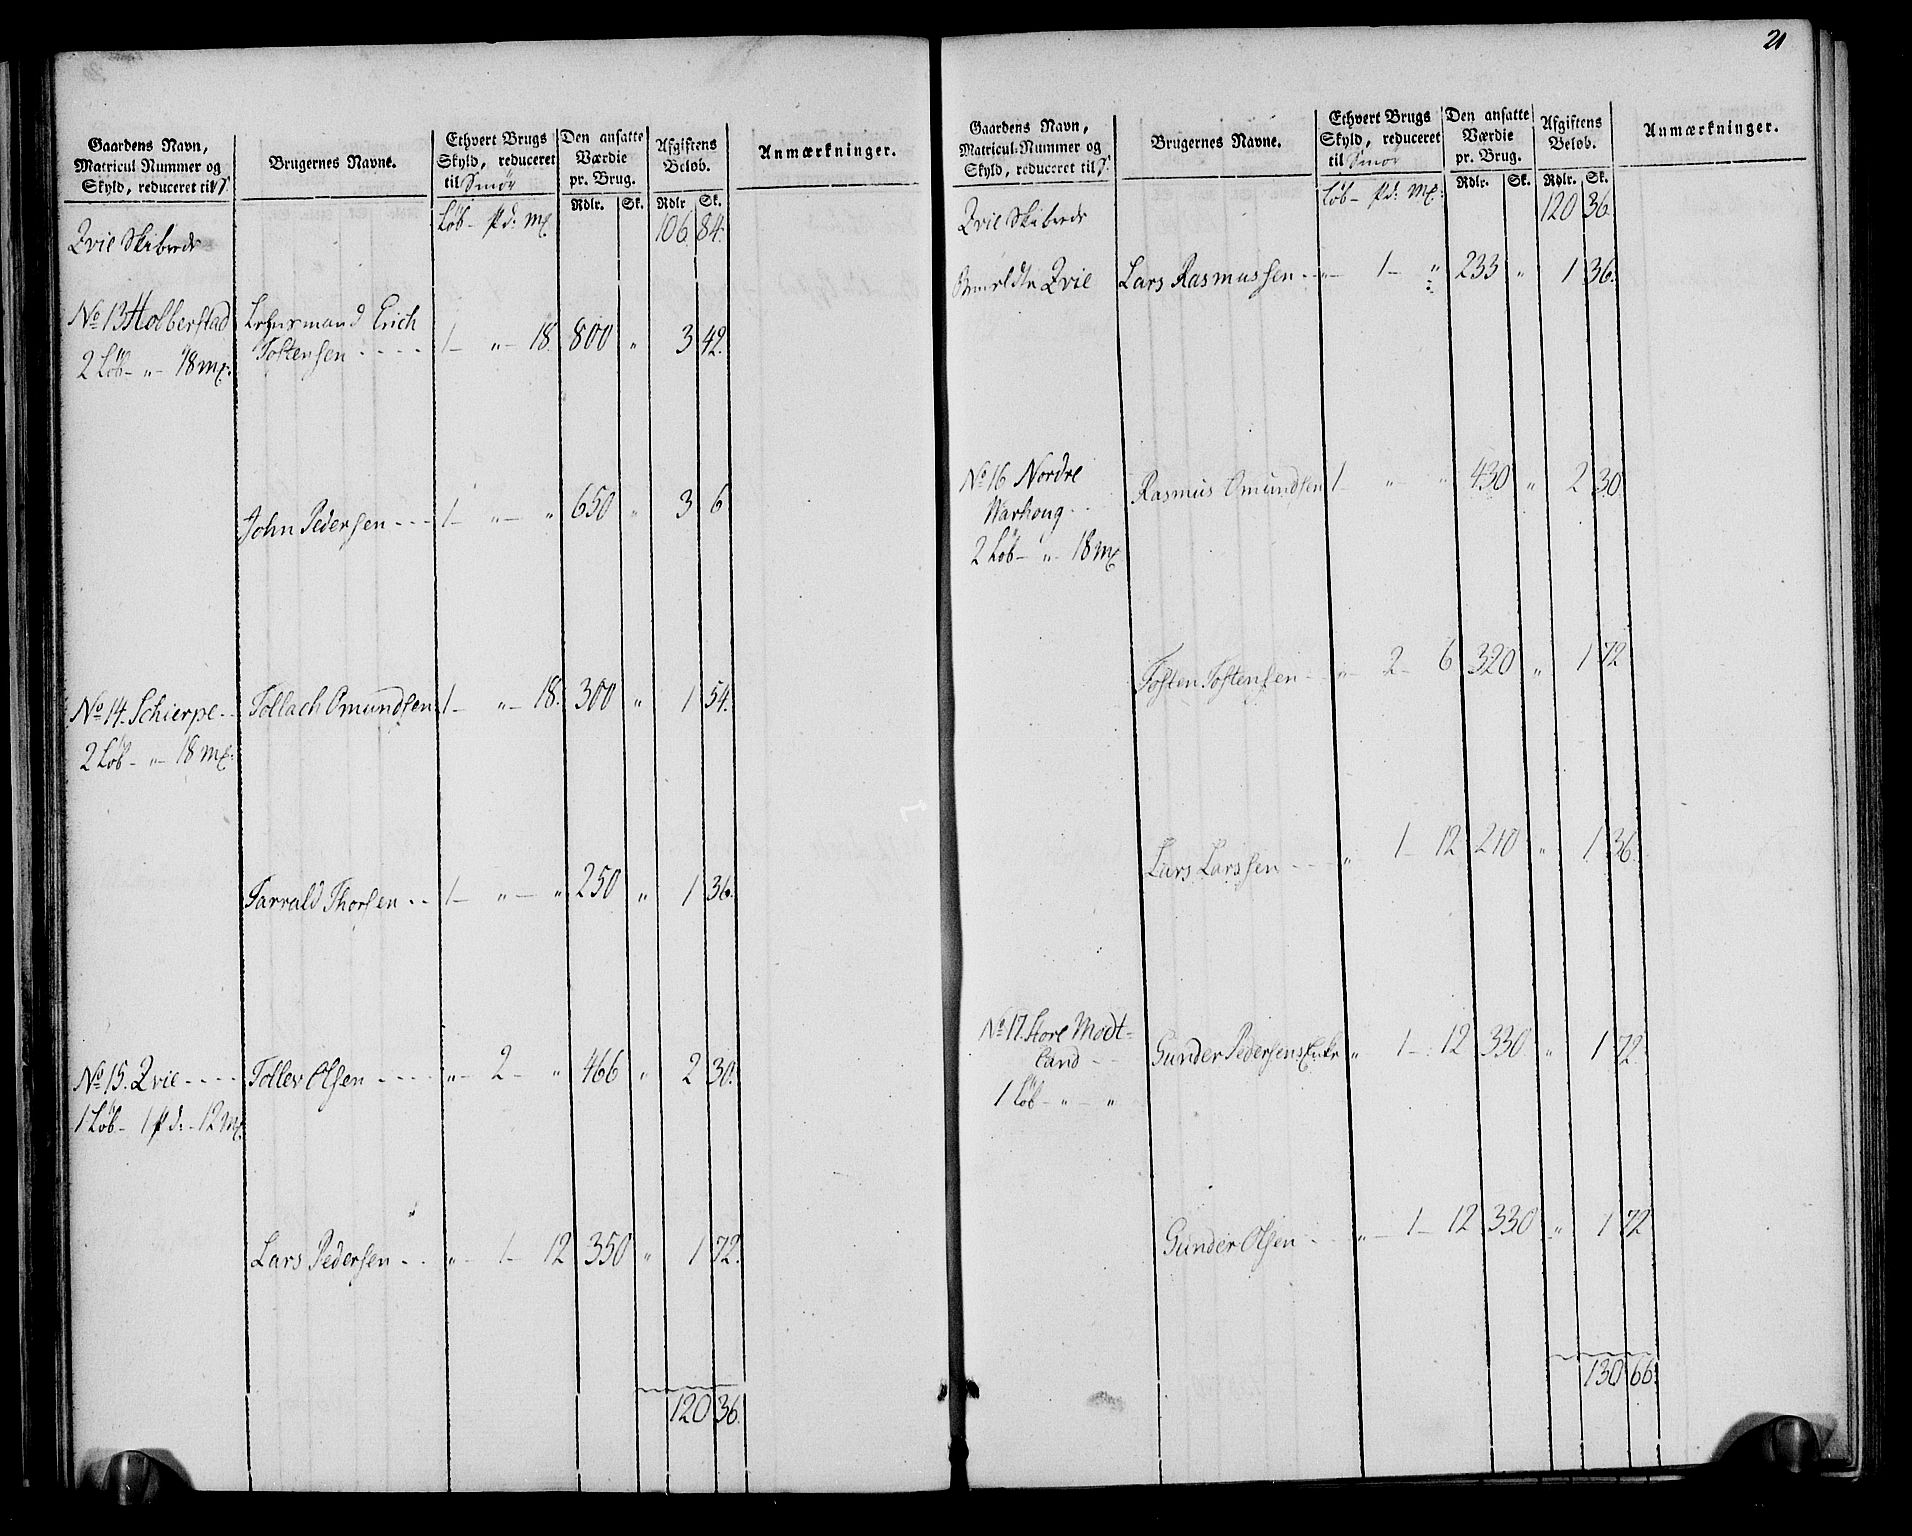 Gaardens Navn,
Matricul Nummer og
Skyld, reduceret til S.
Brugernes Navne.
Ethvert Brugs
Skyld, reduceret
til Smör
Den ansatte
Værdie
pr. Brug.
Afgiftens
Beløb.
Anmærkninger.
Rdlr. Sk. Rdlr Sk.
Løb - pd: mg
Qvie Skibrede 106 84.
No 13 Holberstad Lehnsmand Erich
Tostensen - - - - 1 - " - 18. 800 " 3 42.
2 Løb - " - 18 mg:
John Pedersen - - - 1 - " - " 650 " 3 6
No 14. Schierpe - - Tollach Omundsen 1 - " - 18. 300 " 1 54.
2 Løb - " - 18 mg:
Tarrald Thorsen - - 1 - " - " 250 " 1 36.
No 15. Qvie - - - - Tollev Olsen - - - - " - 2 - " 466 " 2 30.
1 Løb - 1 pd: - 12 mg.
Lars Pedersen - - " - 1 - 12 350 " 1 72.
120 36.
21
Gaardens Navn,
Matricul-Nummer og
Skyld, reduceret til S.
Brugernes Navne.
Ethvert Brugs
Skyld, reduceret
til Smör
Den ansatte
Værdie
pr. Brug.
Afgiftens
Beløb.
Anmærkninger.
Rdlr. Sk. Rdlr. Sk.
Løb - pd: mg:
Qvie Skibrede 120 36
Qvie Lars Rasmussen - - " - 1 - " 233 " 1 36.
No 16 Nordre
Warhoug - - Rasmus Omundsen 1 - " " 430 " 2 30.
2 Løb - " - 18 mg
Tosten Tostensen - - " - 2 - 6 320 " 1 72
Lars Larssen - - - " 1 - 12 210 " 1 36.
No 17. Store Modt-
land - - Gunder Pedersens Enke " 1 - 12 330 " 1 72.
1 Løb - " - "
Gunder Olsen - - " - 1 - 12 330 " 1 72
130 66.